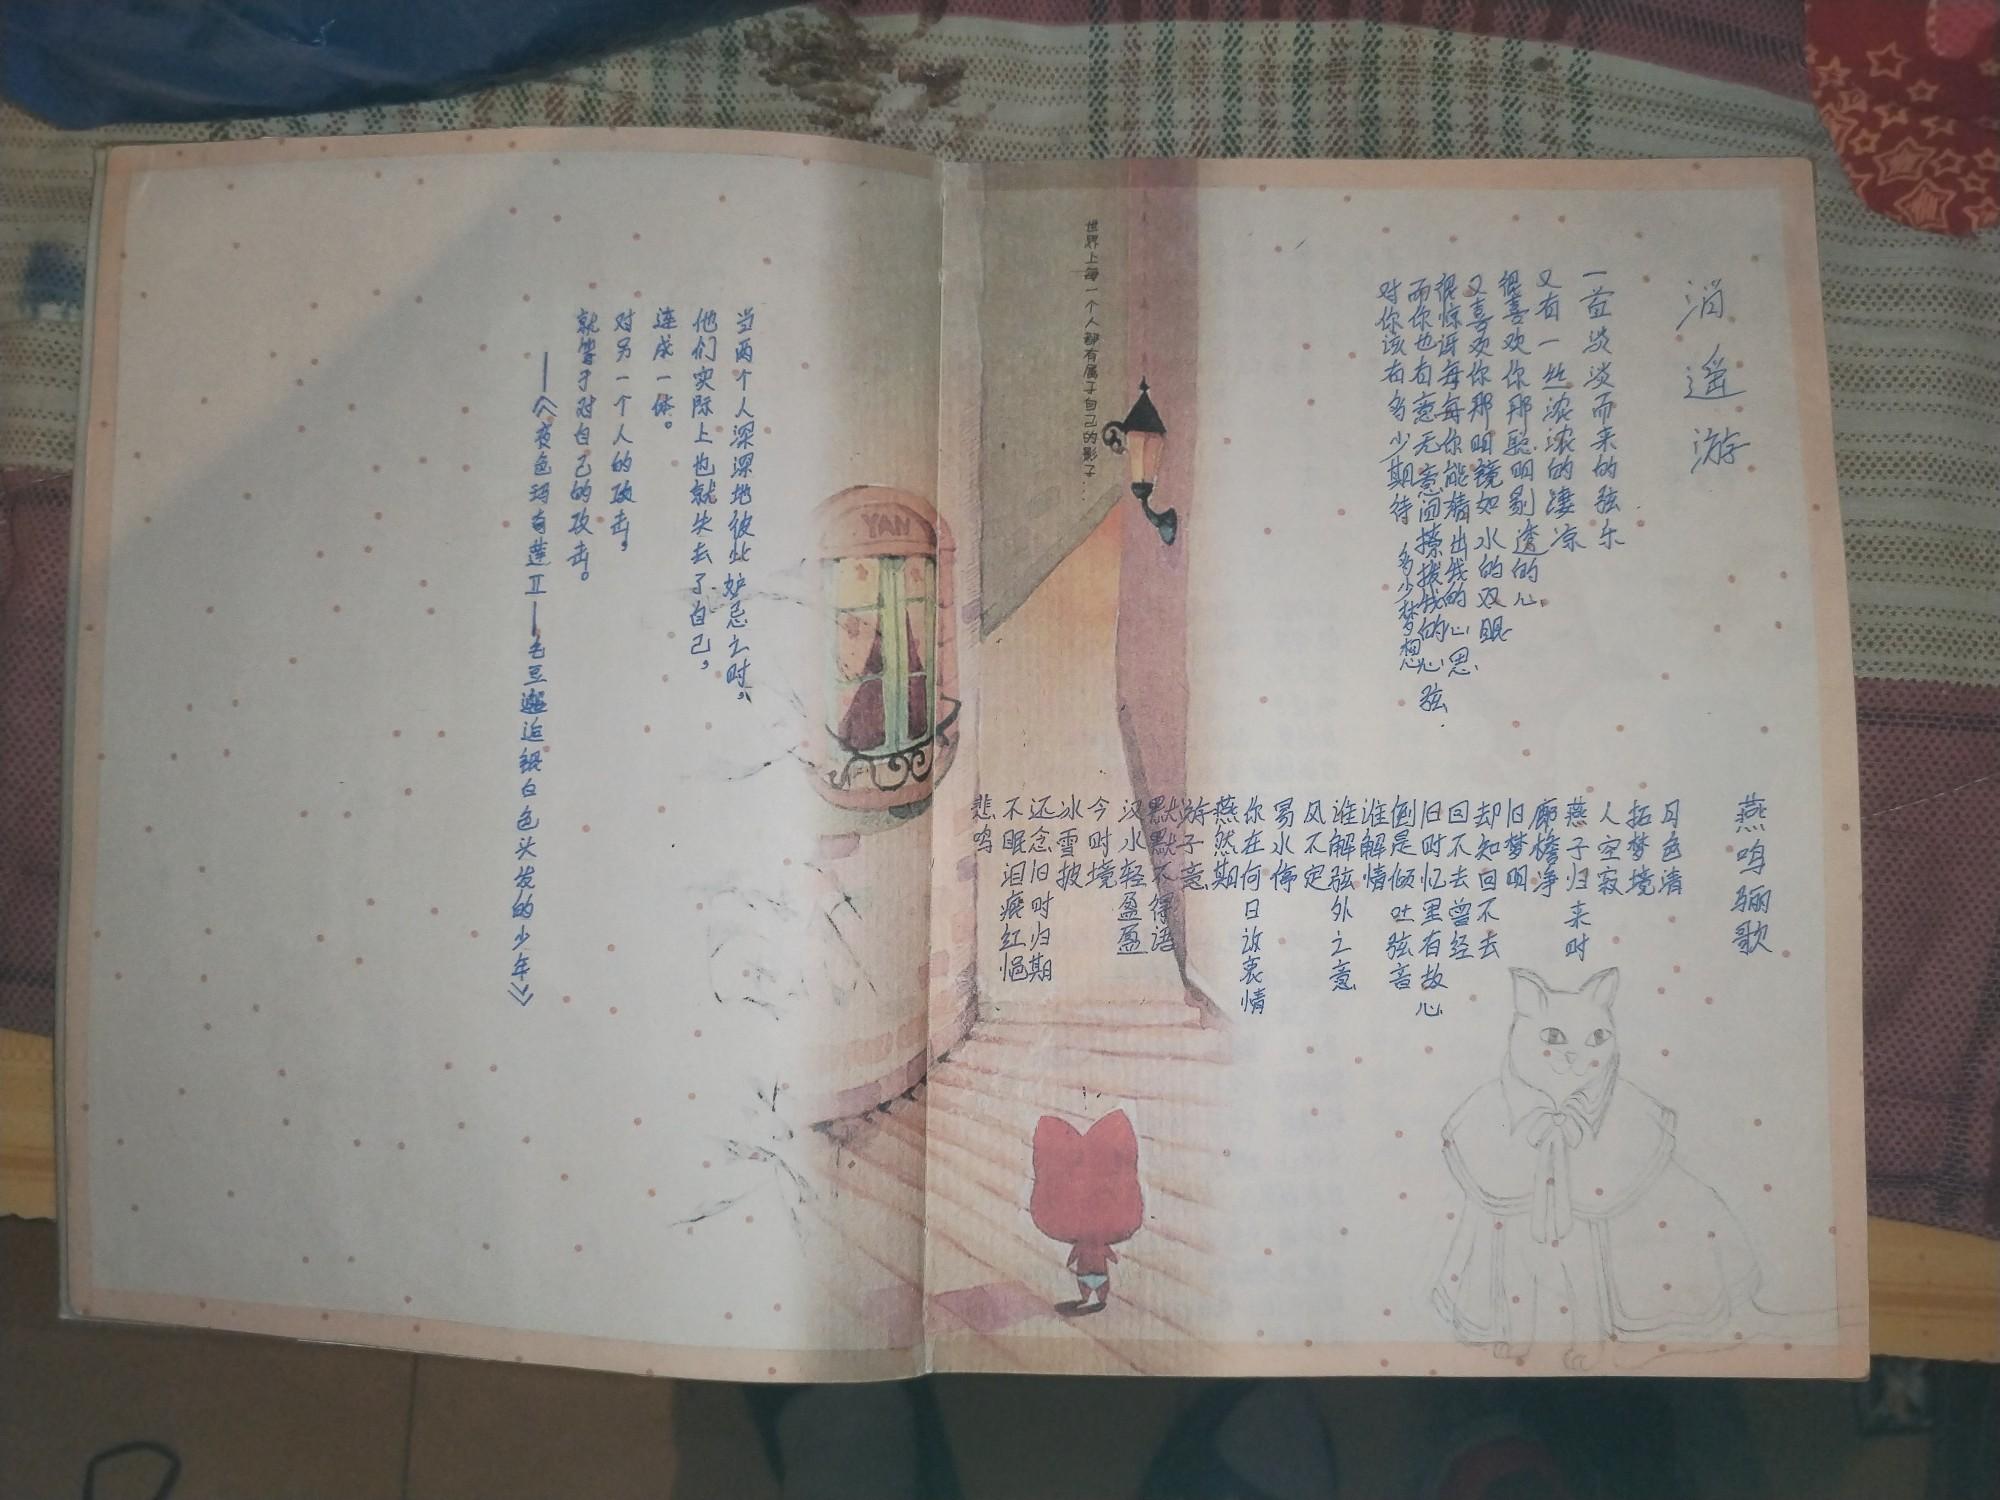 消遥游
一首淡淡而来的弦乐
又有一丝浓浓的凄凉
很喜欢你那聪明剔透的心
又喜欢你那明镜如水的双眼
很惊讶每每你能猜出我的心思
而你也有意无意间撩拨我的心弦
对你该有多少期待 多少梦想
燕鸣骊歌
月色清
拓梦境
人空寂
燕子归来时
廊檐净
旧梦明
却知回不去
回不去曾经
旧时忆里有故心
倒是倾吐弦音
谁解情
谁解弦外之意
风不定
易水停
你在何日诉衷情
燕然期
游子意
默默不得语
汉水轻盈盈
今时境
冰雪披
还念旧时归期
不眠泪痕红悒
悲鸣
世界上每一个人都有属于自己的影子...
YAN
当两个人深深地彼此妒忌之时，
他们实际上也就失去了自己，
连成一体。
对另一个人的攻击，
就等于对自己的攻击。
——《夜色玛奇莲Ⅱ——毛豆邂逅银白色头发的少年》